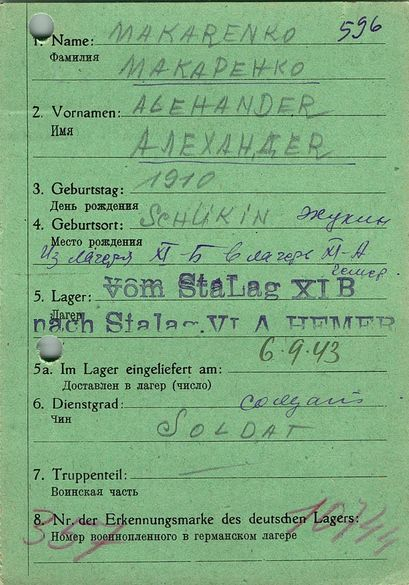 1. Name: MAKARENKO 596
Фамилия МАКАРЕНКО
2. Vornamen: ALEHANDER
Имя АЛЕХАНДЕR
3. Geburtstag: 1910
День рождения
4. Geburtsort: SCHUKIN Жукин
Место рождения
Из лагеря XI-Б в лагерь VI-А
гемер
5. Lager: vom StaLag XI B
Лагерь nach Stalag.VI A HEMER
6.9.43
5a. Im Lager eingeliefert am:
Доставлен в лагерь (число)
6. Dienstgrad: солдат
Чин SOLDAT
7. Truppenteil: —
Воинская часть
8. Nr. der Erkennungsmarke des deutschen Lagers:
Номер военнопленного в германском лагере
10744